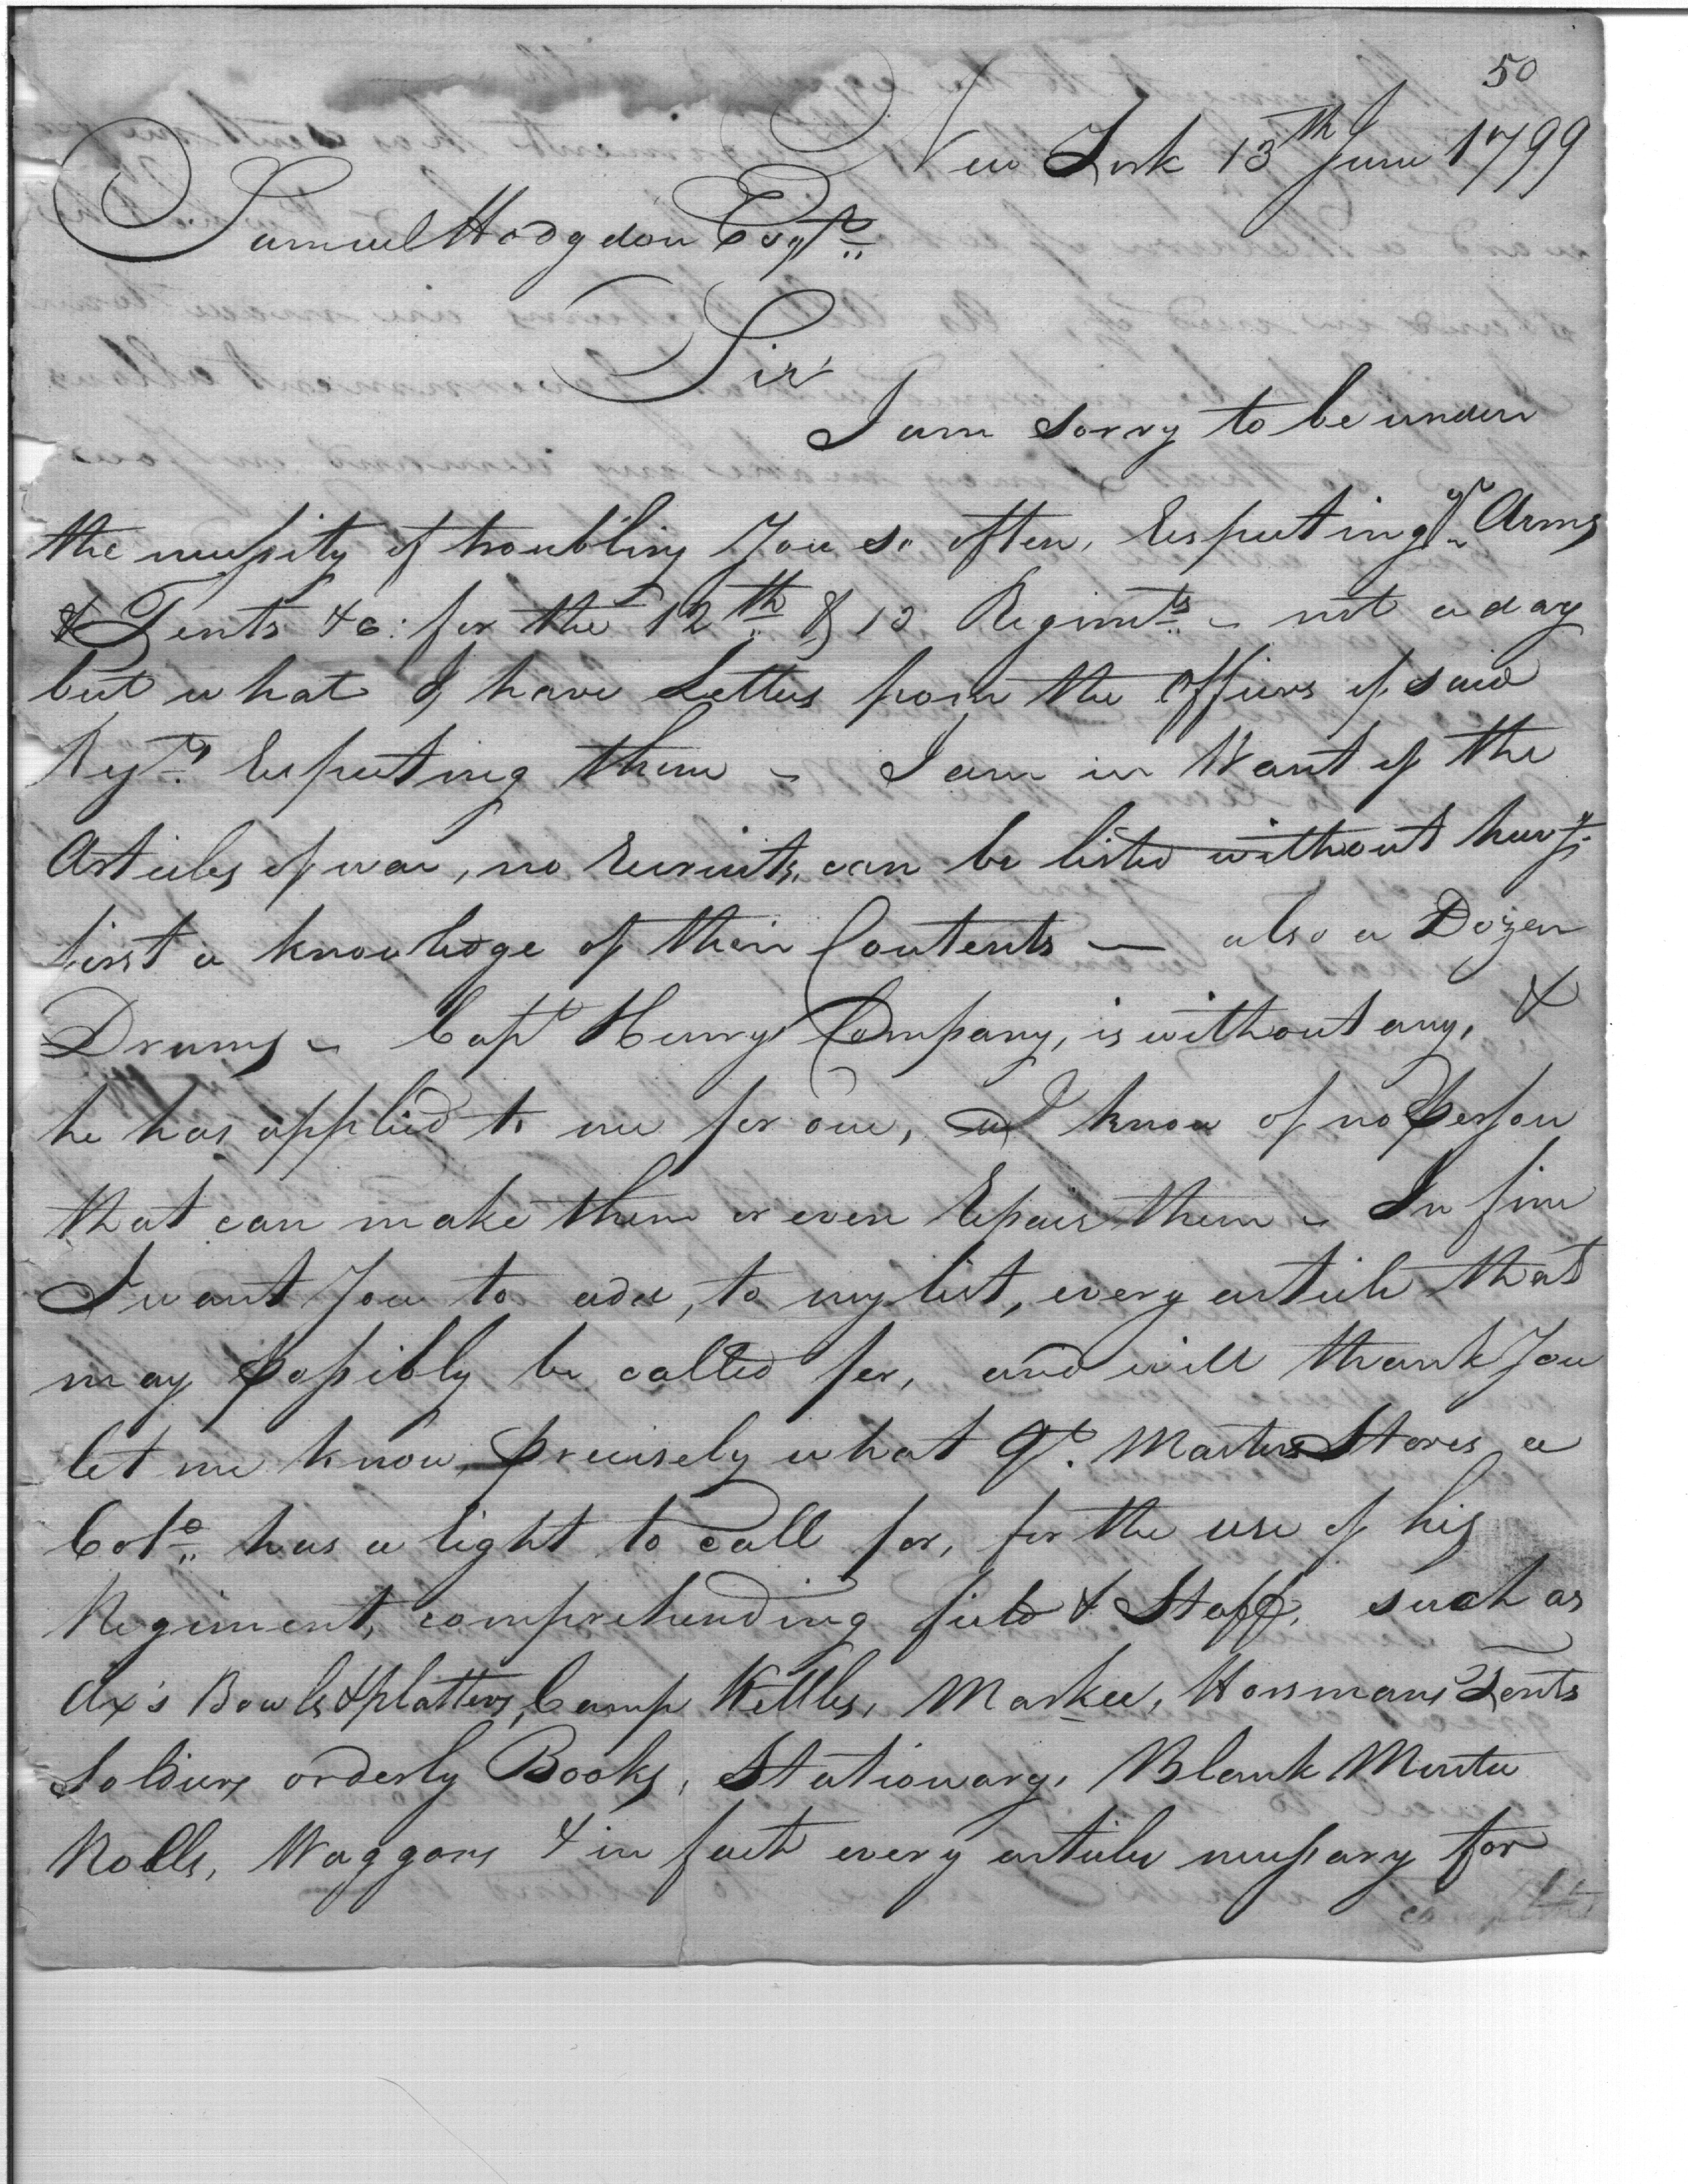 50
New York 13th June 1799
Samuel Hodgdon Esqr
Sir
I am sorry to be under
the necessity of troubling You so often, Respecting ye Arms
& Tents &c: for the 12th & 13 Regimts - not a day
but what I have Letters from the Officers of said
Regts Respecting them - I am in Want of the
Articles of war, no Recruits, can be listed without havg
first a knowledge of their Contents — also a Dozen
Drums - Capt Henrys Company, is without any, &
he has applied to me for one, I know of no Person
that can make them or even Repair them - In fine
I want You to add, to my list, every article that
may possibly be called for, and will thank You
let me know precisely what Qr. Masters Stores a
Colo has a right to call for, for the use of his
Regiment, comprehending field & Staff, such as
Ax's Bowls & platters, Camp Kettles, Markee, Horsmans Tents
Soldiers orderly Books, Stationary, Blank Muster
Rolls, Waggons & in fact every article necessary for